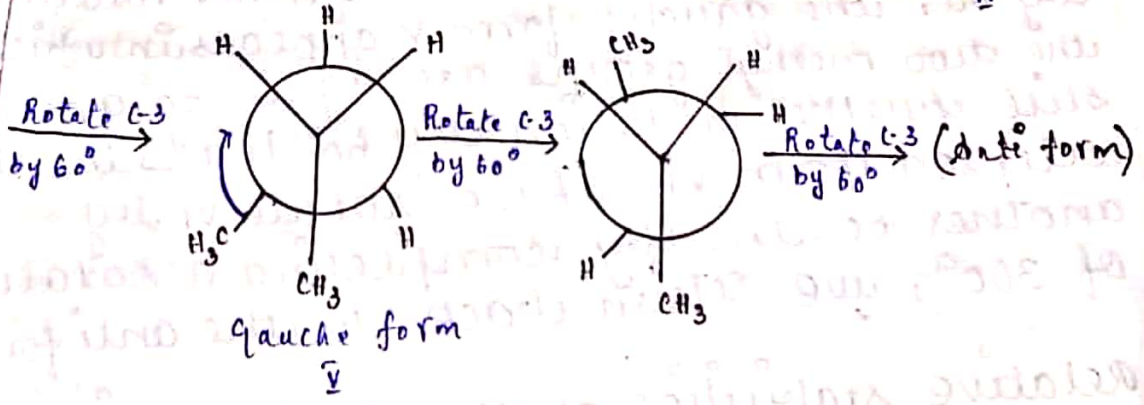 Rotate C-3
by 60°
H
H
H
H₃C
H
CH₃
gauche form
V
Rotate C-3
by 60°
CH₃
H
H
H
H
CH₃
Rotate C-3
by 60°
(Anti form)